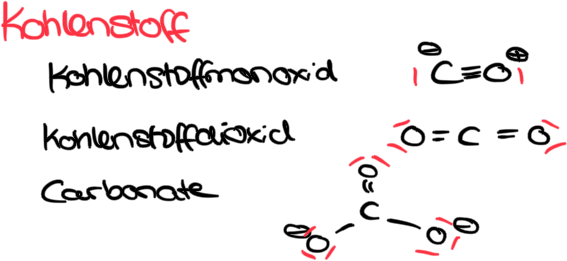 Kohlenstoff
Kohlenstoffmonoxid |C≡O|
⊖ ⊕
Kohlenstoffdioxid O=C=O
Carbonate
O
||
C
⊖O O⊖